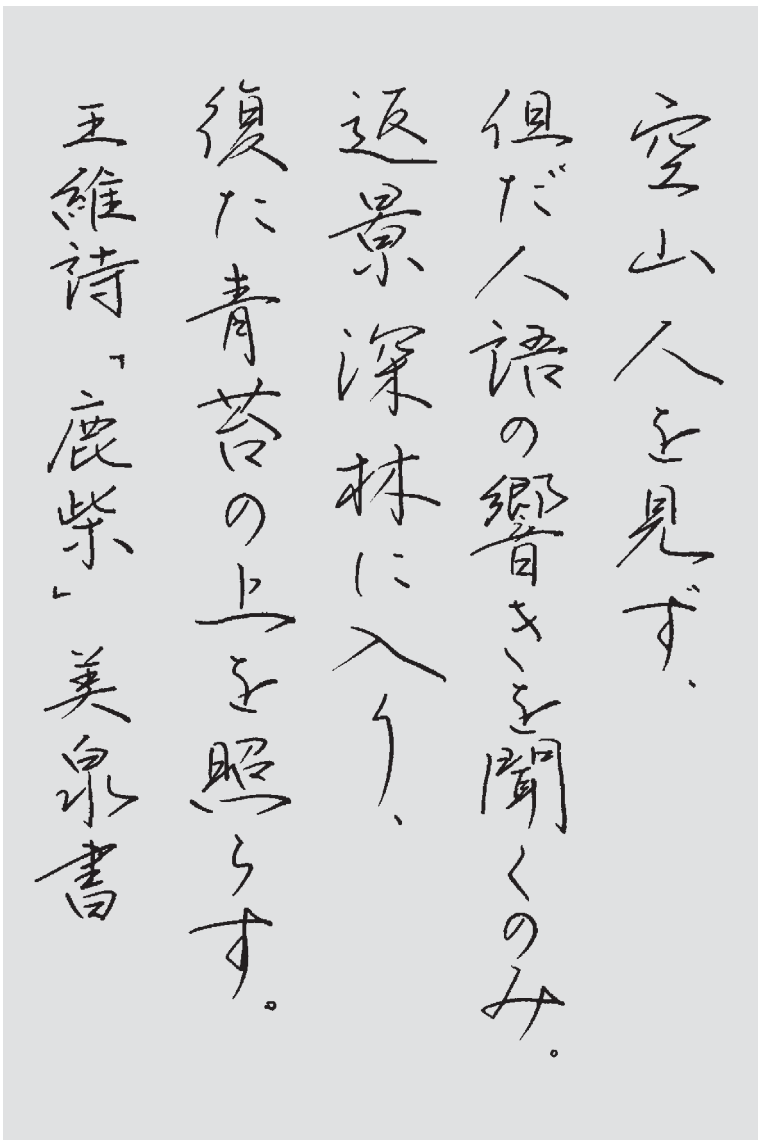 空山人を見ず、
但だ人語の響きを聞くのみ。
返景深林に入り、
復た青苔の上を照らす。
王維詩「鹿柴」美泉書